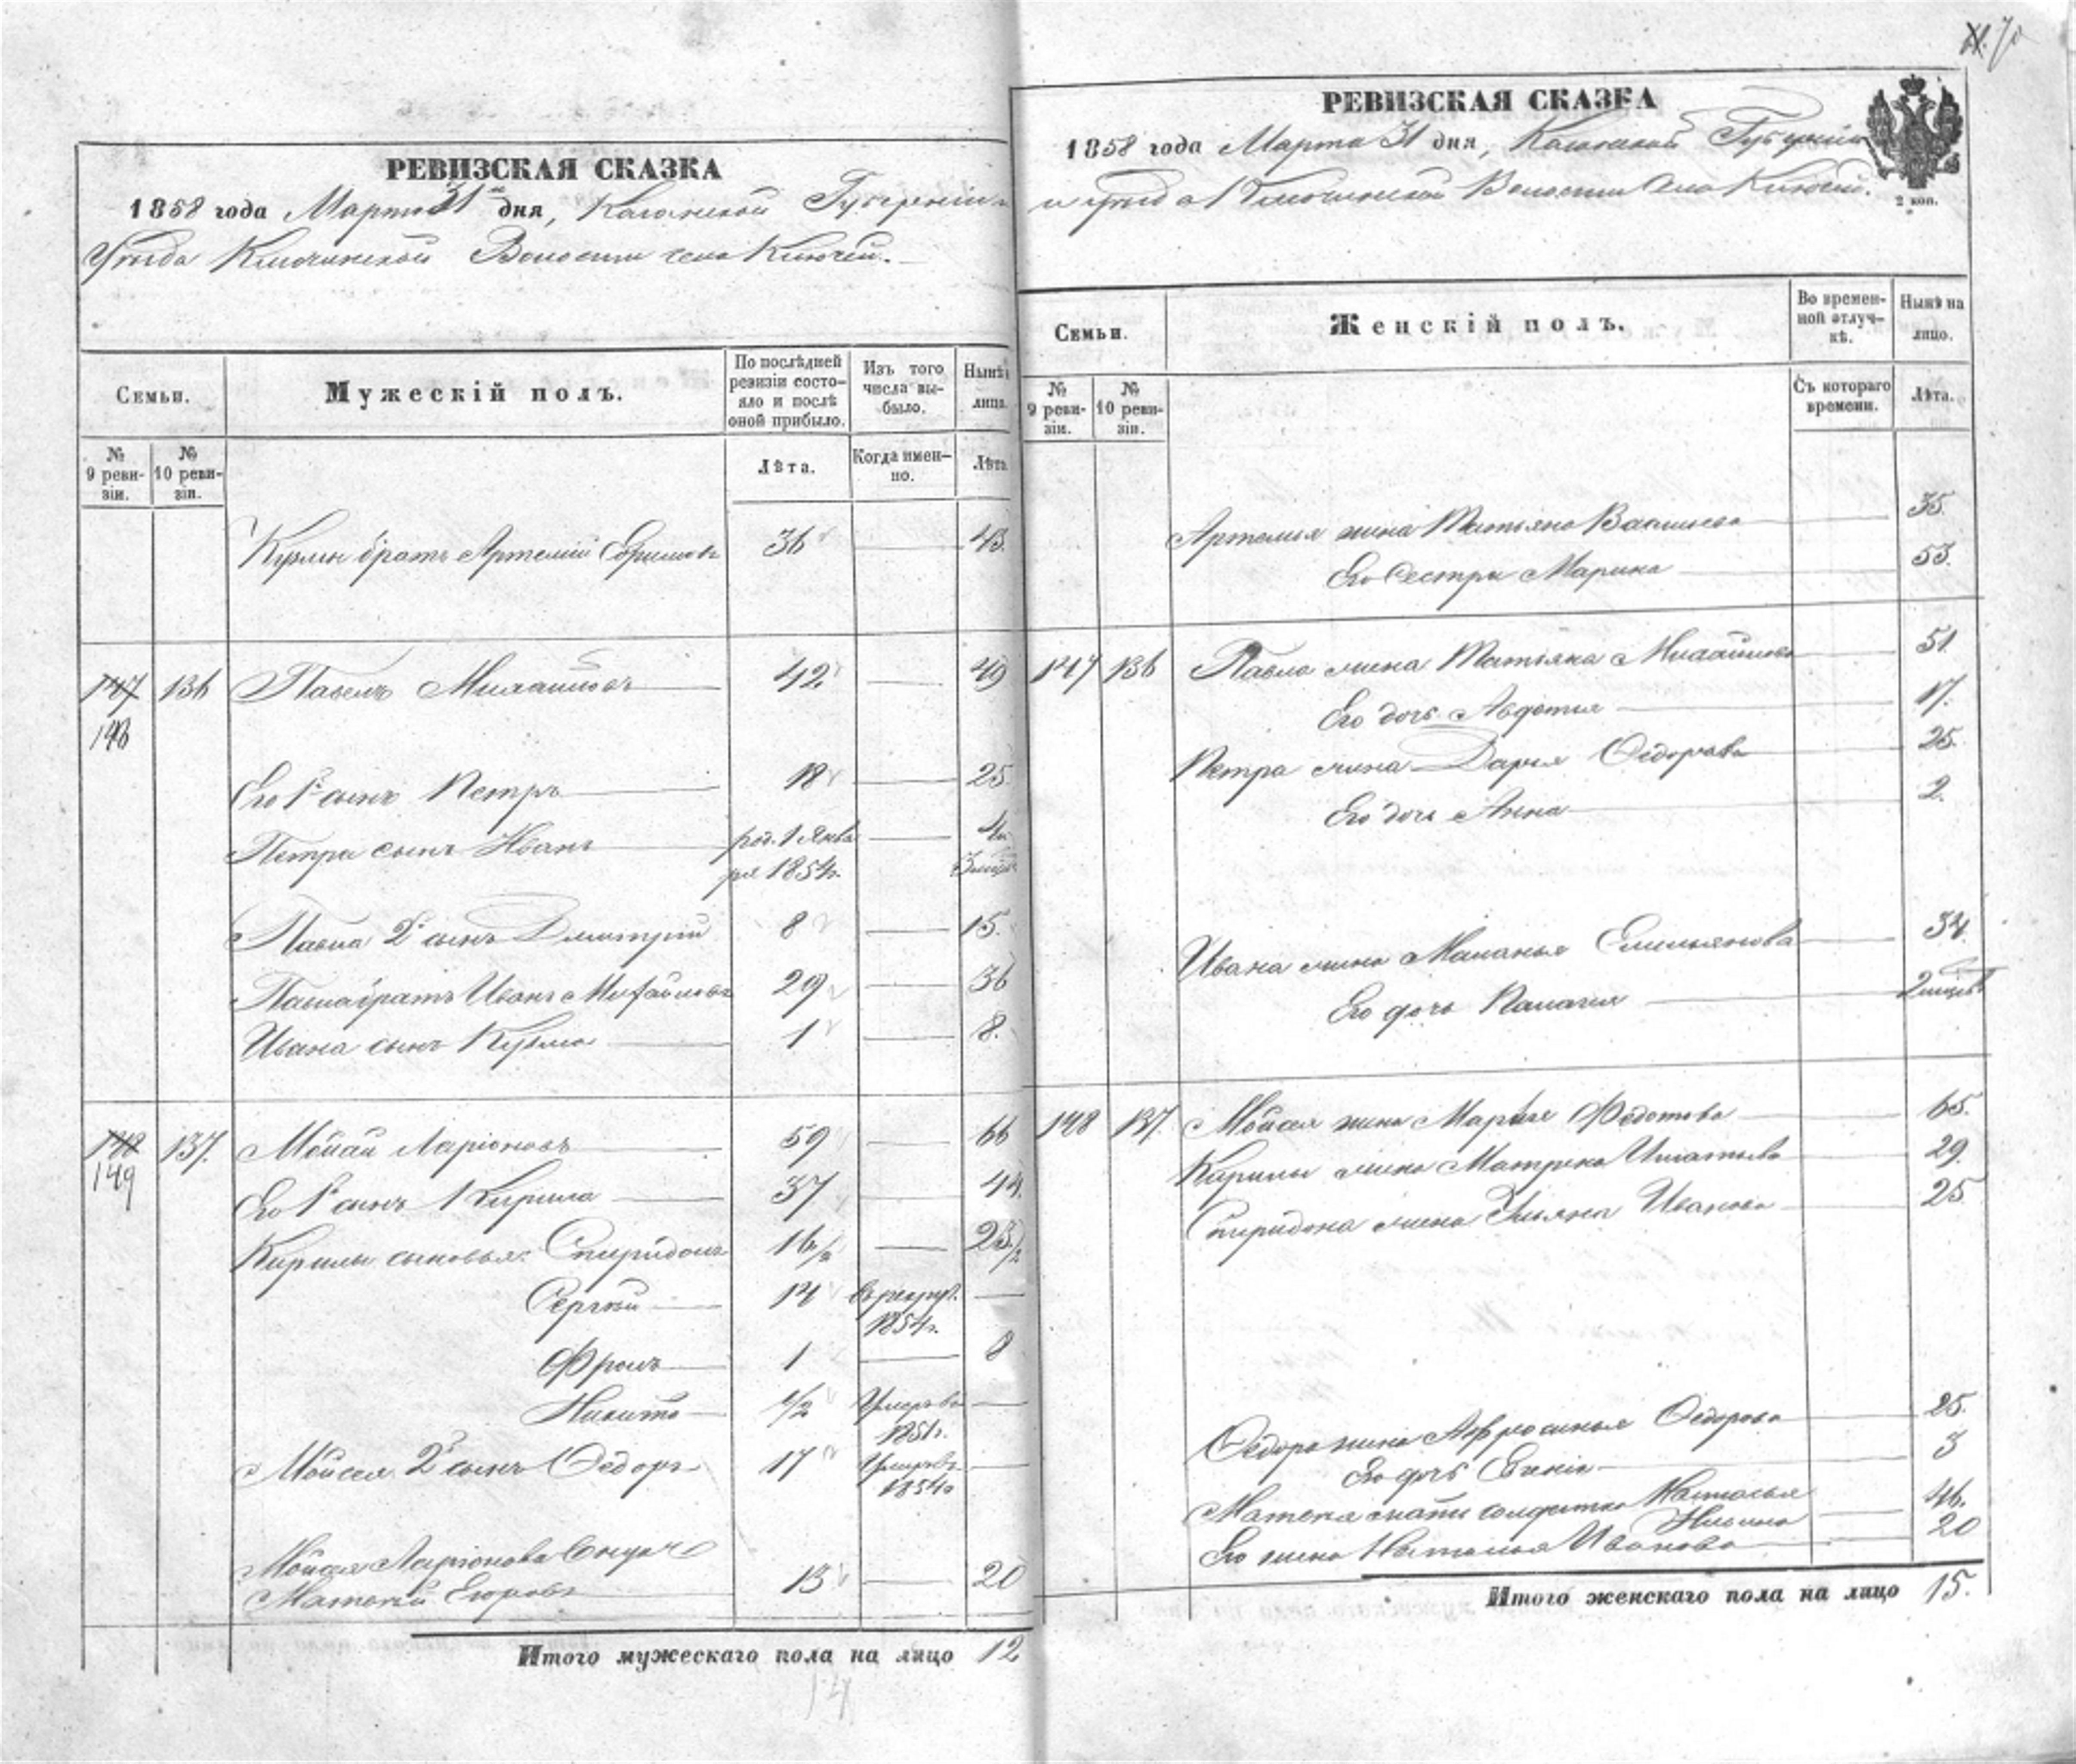 РЕВИЗСКАЯ СКАЗКА
1858 года Марта 31 дня, Казанской Губерніи и
Уѣзда Ключинской Волости села Ключей.
Семьи.
Мужескій полъ.
По послѣдней ревизіи состояло и послѣ оной прибыло.
Изъ того числа выбыло.
Нынѣ лицо.
№ 9 ревизіи.
№ 10 ревизіи.
Лѣта.
Когда именно.
Лѣта.
Кузмы братъ Артемій Ефимовъ 36 43.
147 136 Павелъ Михайловъ 42 49
148
Его 1й сынъ Петръ 18 25
Петра сынъ Иванъ род. 1 Янва 4
ря 1854г. 3 мѣс.
Павла 2й сынъ Дмитрій 8 15.
Павла братъ Иванъ Михайловъ 29 36
Ивана сынъ Кузьма 1 8.
148 137. Мойсей Ларіоновъ 59 66
149
Его 1й сынъ Кирила 37 44.
Кирилы сыновья: Спиридонъ 16 1/2 23 1/2
Сергѣй 14 въ рекрут.
1854г.
Фролъ 1 8
Никита 1/2 Умеръ въ
1851г.
Мойсея 2й сынъ Ѳедоръ 17 Умеръ въ
1854
Мойсея Ларіонова внукъ
Матвѣй Егоровъ 13 20
Итого мужескаго пола на лицо 12
14
70
РЕВИЗСКАЯ СКАЗКА
1858 года Марта 31 дня, Казанской Губерніи
и уѣзда Ключинской Волости села Ключей.
2 коп.
Семьи.
Женскій полъ.
Во временной отлучкѣ.
Нынѣ на лицо.
№ 9 ревизіи.
№ 10 ревизіи.
Съ котораго времени.
Лѣта.
Артемья жена Татьяна Васильева 35.
Его сестра Марина 53.
147 136 Павла жена Татьяна Михайлова 51.
Его дочь Авдотья 17.
Петра жена Дарья Ѳедорова 25.
Его дочь Анна 2.
Ивана жена Маланья Емельянова 34.
Его дочь Палагея 2 мѣсяц.
148 137. Мойсея жена Марья Федотова 65.
Кирилы жена Матрена Игнатьева 29.
Спиридона жена Ульяна Иванова 25
Ѳедора жена Афросинья Ѳедорова 25.
Его дочь Евгенія 3
Матвея мать солдатка Настасья 46.
Ильина
Его жена Наталья Иванова 20
Итого женскаго пола на лицо 15.